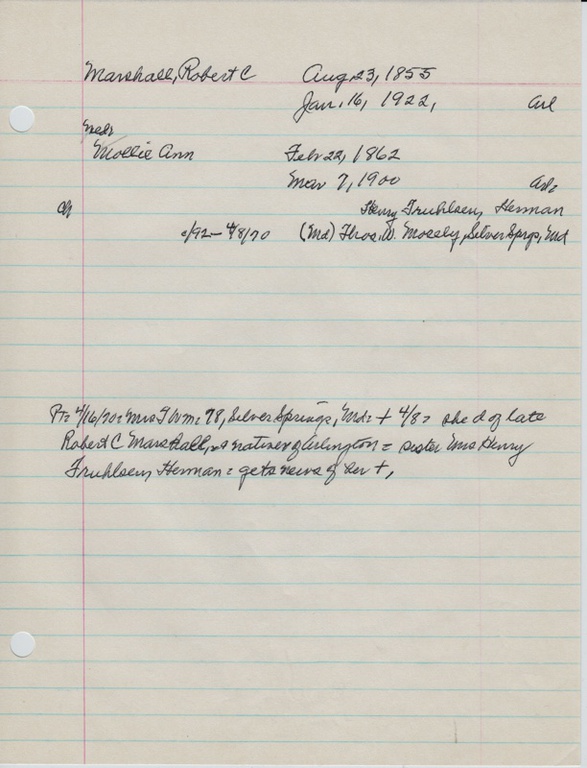 Marshall, Robert C Aug 23, 1855
Jan. 16, 1922, Arl
Mollie Ann Feb 22, 1862
Mar 7, 1900 Arl
Ch Henry Fruhlsen, Herman
c/92 - 4/8/70 (Md) Thos. W. Mosely, Silver Sprgs, Md
Pt = 4/16/70 = Mrs T W m = 78, Silver Springs, Md = + 4/8 = she d of late
Robert C Marshall, natives of Arlington = sister Mrs Henry
Fruhlsen, Herman = gets news of her +,